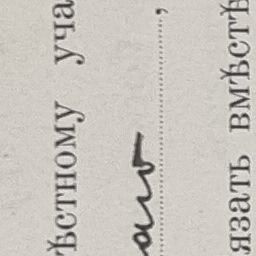 ѣстному уча
,
язать вмѣстѣ